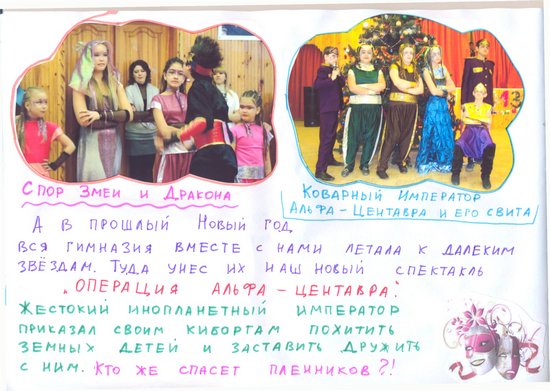 Спор Змеи и Дракона
Коварный Император
Альфа-Центавра и его свита
А в прошлый Новый год
вся гимназия вместе с нами летала к далеким
звёздам. Туда унес их наш новый спектакль
„Операция Альфа-Центавра".
Жестокий инопланетный император
приказал своим киборгам похитить
земных детей и заставить дружить
с ним. Кто же спасет пленников?!